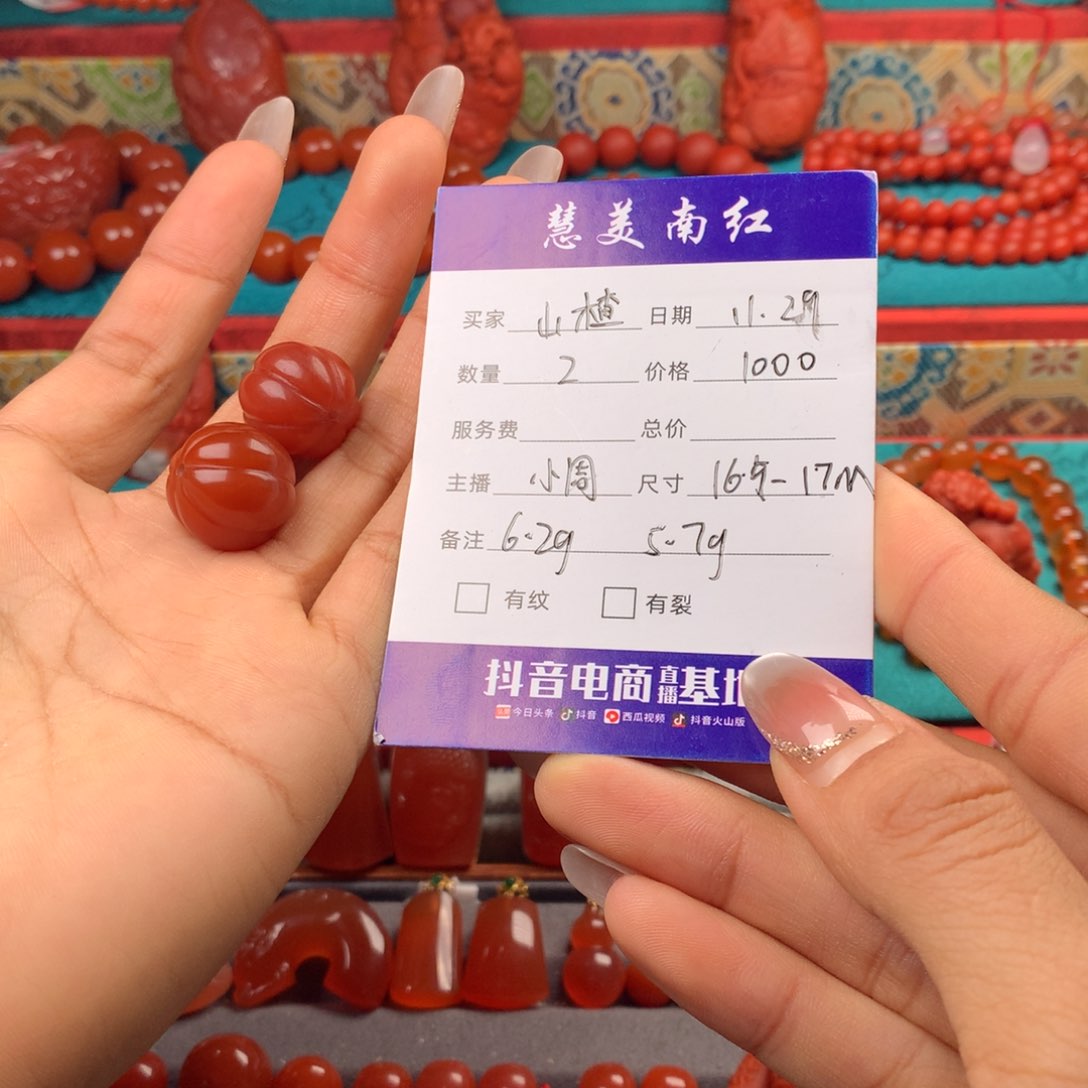 慧美南红
买家 山楂 日期 11.29
数量 2 价格 1000
服务费 总价
主播 小周 尺寸 16.5-17M
备注 6.2g 5.7g
有纹 有裂
抖音电商直播基地
今日头条 抖音 西瓜视频 抖音火山版